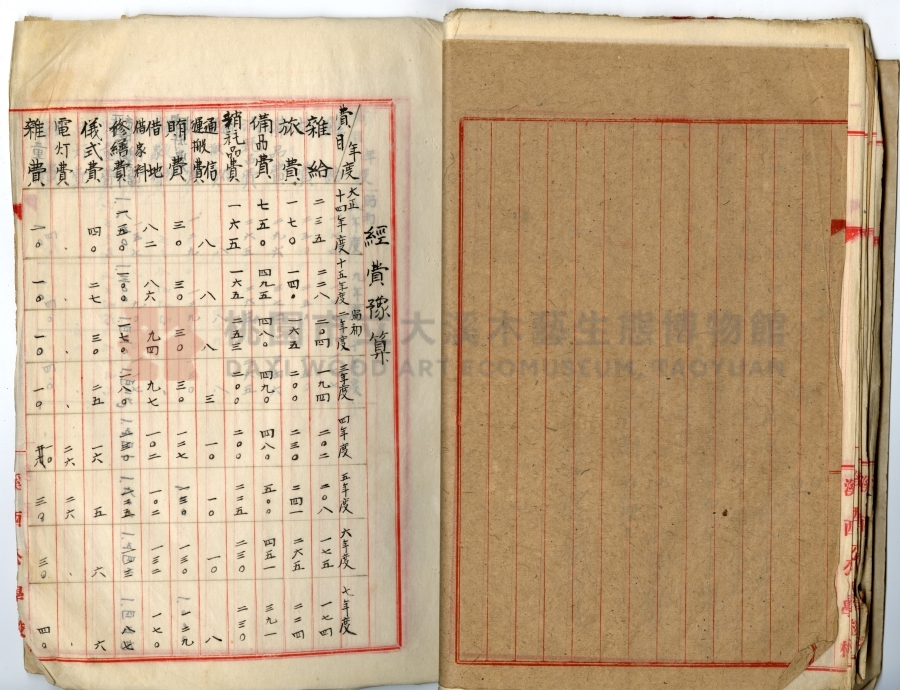 經費豫算
費目/年度 大正十四年度 十五年度 昭和二年度 三年度 四年度 五年度 六年度 七年度
雜給 二三五 二二八 二〇四 一九四 二〇二 二〇八 一七五 一七四
旅費 一七〇 一四〇 一六五 二〇〇 二三〇 二四一 二六五 二二四
備品費 七五〇 四九五 四八〇 四九〇 四八〇 五〇〇 四五一 三九一
消耗品費 一六五 一六五 一五三 二〇〇 二〇〇 二二五 二三〇 二三〇
通信運搬費 八 八 八 三 一〇 一〇 一〇 八
賄費 三〇 三〇 三〇 三〇 一二七 一三〇 一三〇
借地借家料 八二 八六 九四 九七 一〇二 一〇二 一三二 一七〇
修繕費
儀式費 四〇 二七 三〇 二五 一六 五 六 六
電灯費 、 、 、 、 二六 二六 、 、
雜費 二〇 一〇 一〇 一〇 三〇 三〇 四〇
桃園市立大溪木藝生態博物館
DAXI WOOD ART ECOMUSEUM, TAOYUAN